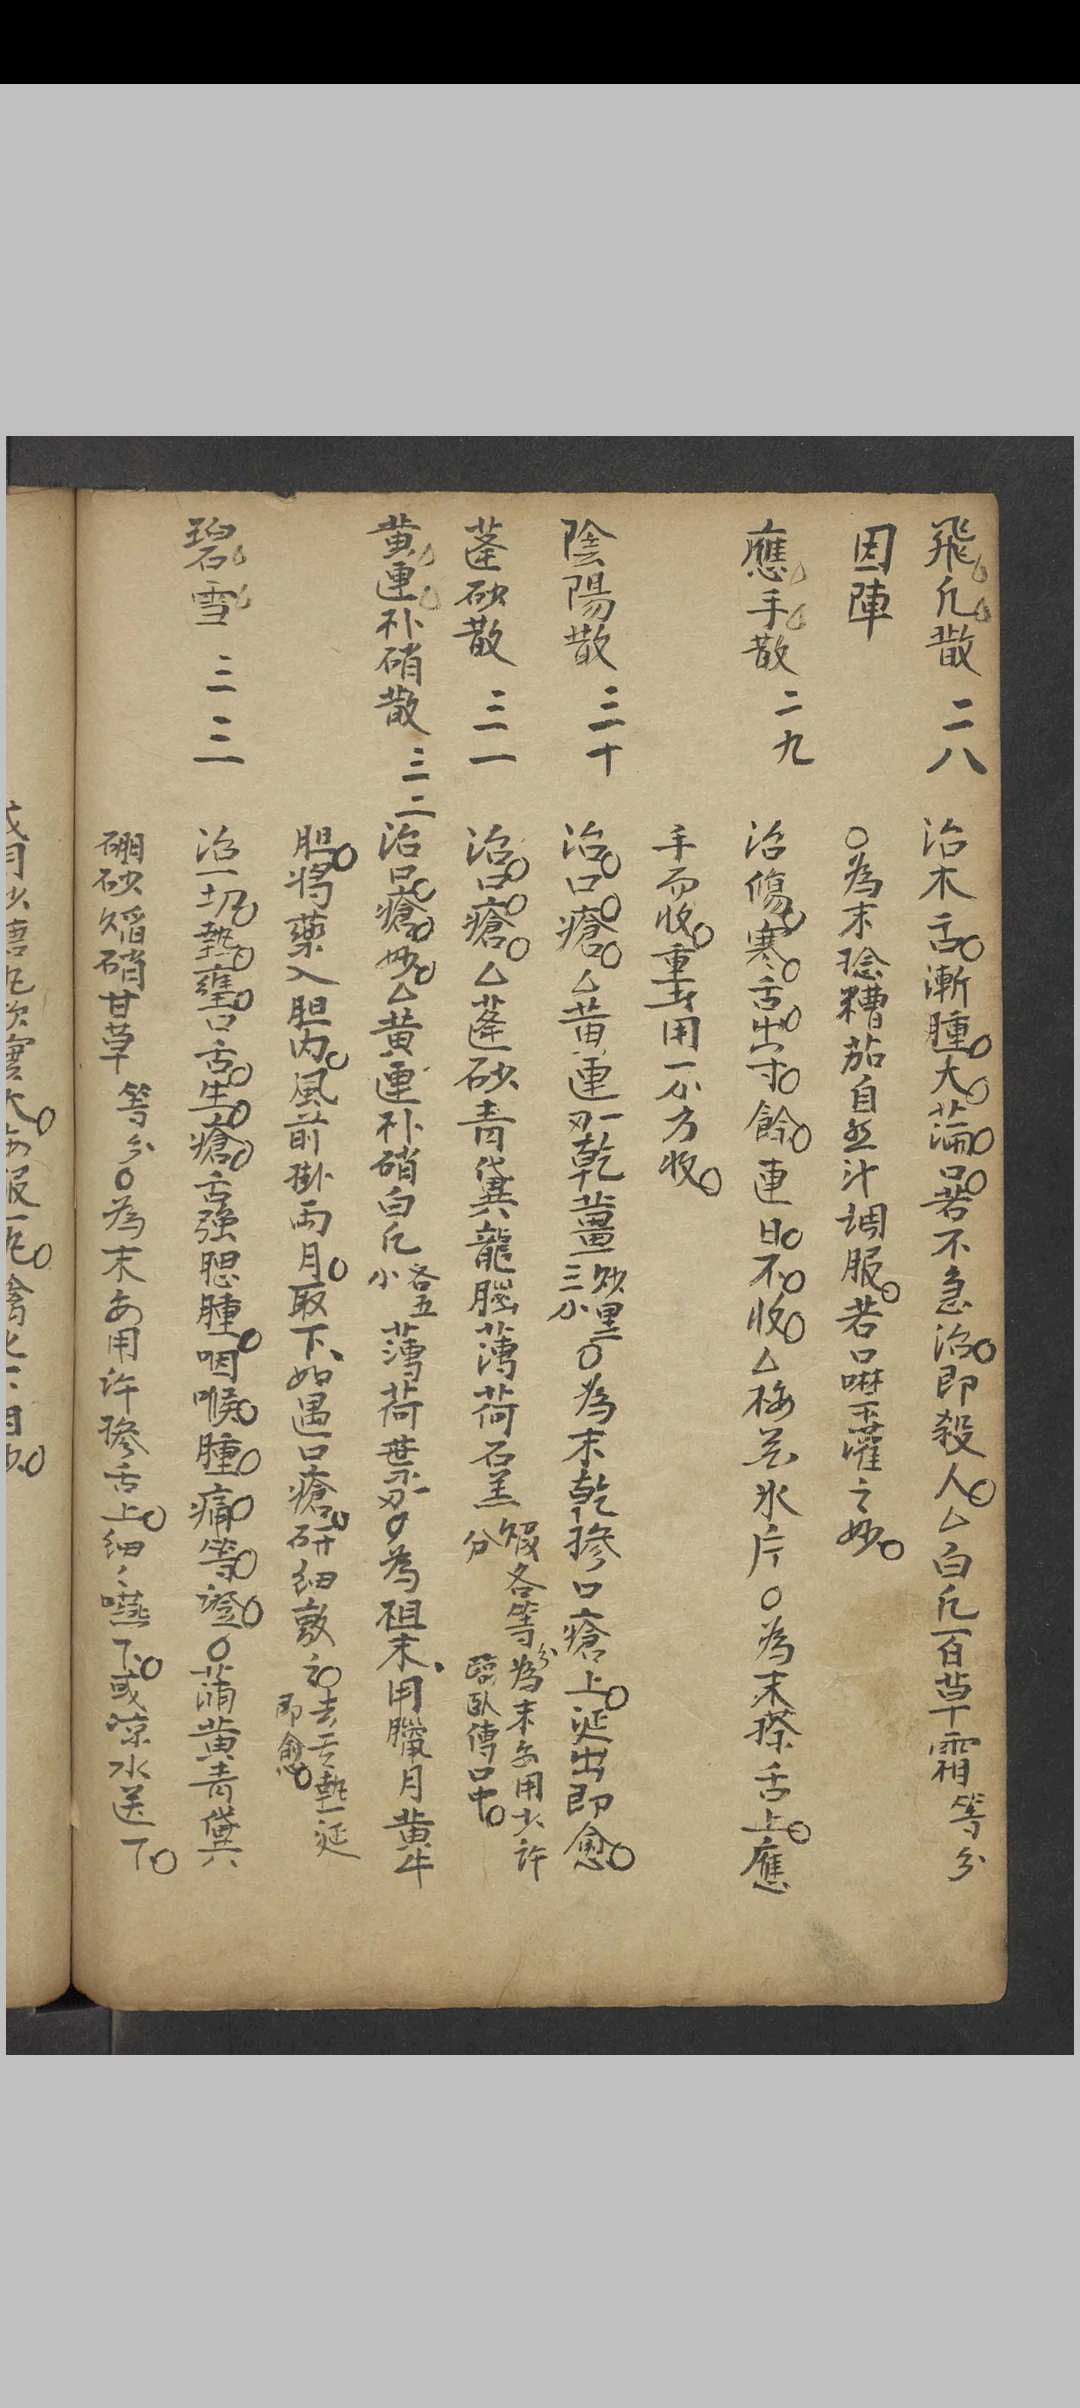 飛凡散 二八 治木舌漸腫大滿口若不急治即殺人△白凡百草霜等分
因陣 ○為末捻糟茄自然汁调服若口噤灌之妙
應手散 二九 治傷寒舌出寸餘連日不收△梅花氷片○為末摻舌上應
手而收重者用一小方收
陰陽散 三十 治口瘡△黃連一乾薑炒黑三小○為末乾摻口瘡上涎出即愈
蓬砂散 三一 治口瘡△蓬砂青黛龍腦薄荷石羔煅各等分為末每用少許臨臥傅口中
黃連朴硝散 三二 治口瘡妙△黃連朴硝白凡各五小薄荷葉一○為粗末用臘月黃牛
胆將藥入胆內風前掛兩月取下如遇口瘡研細敷之去熱涎即愈
碧雪 三三 治一切熱壅口舌生瘡舌强腮腫咽喉腫痛等證○蒲黃青黛
硼砂焰硝甘草等分○為末每用許摻舌上細細嚥下或凉水送下